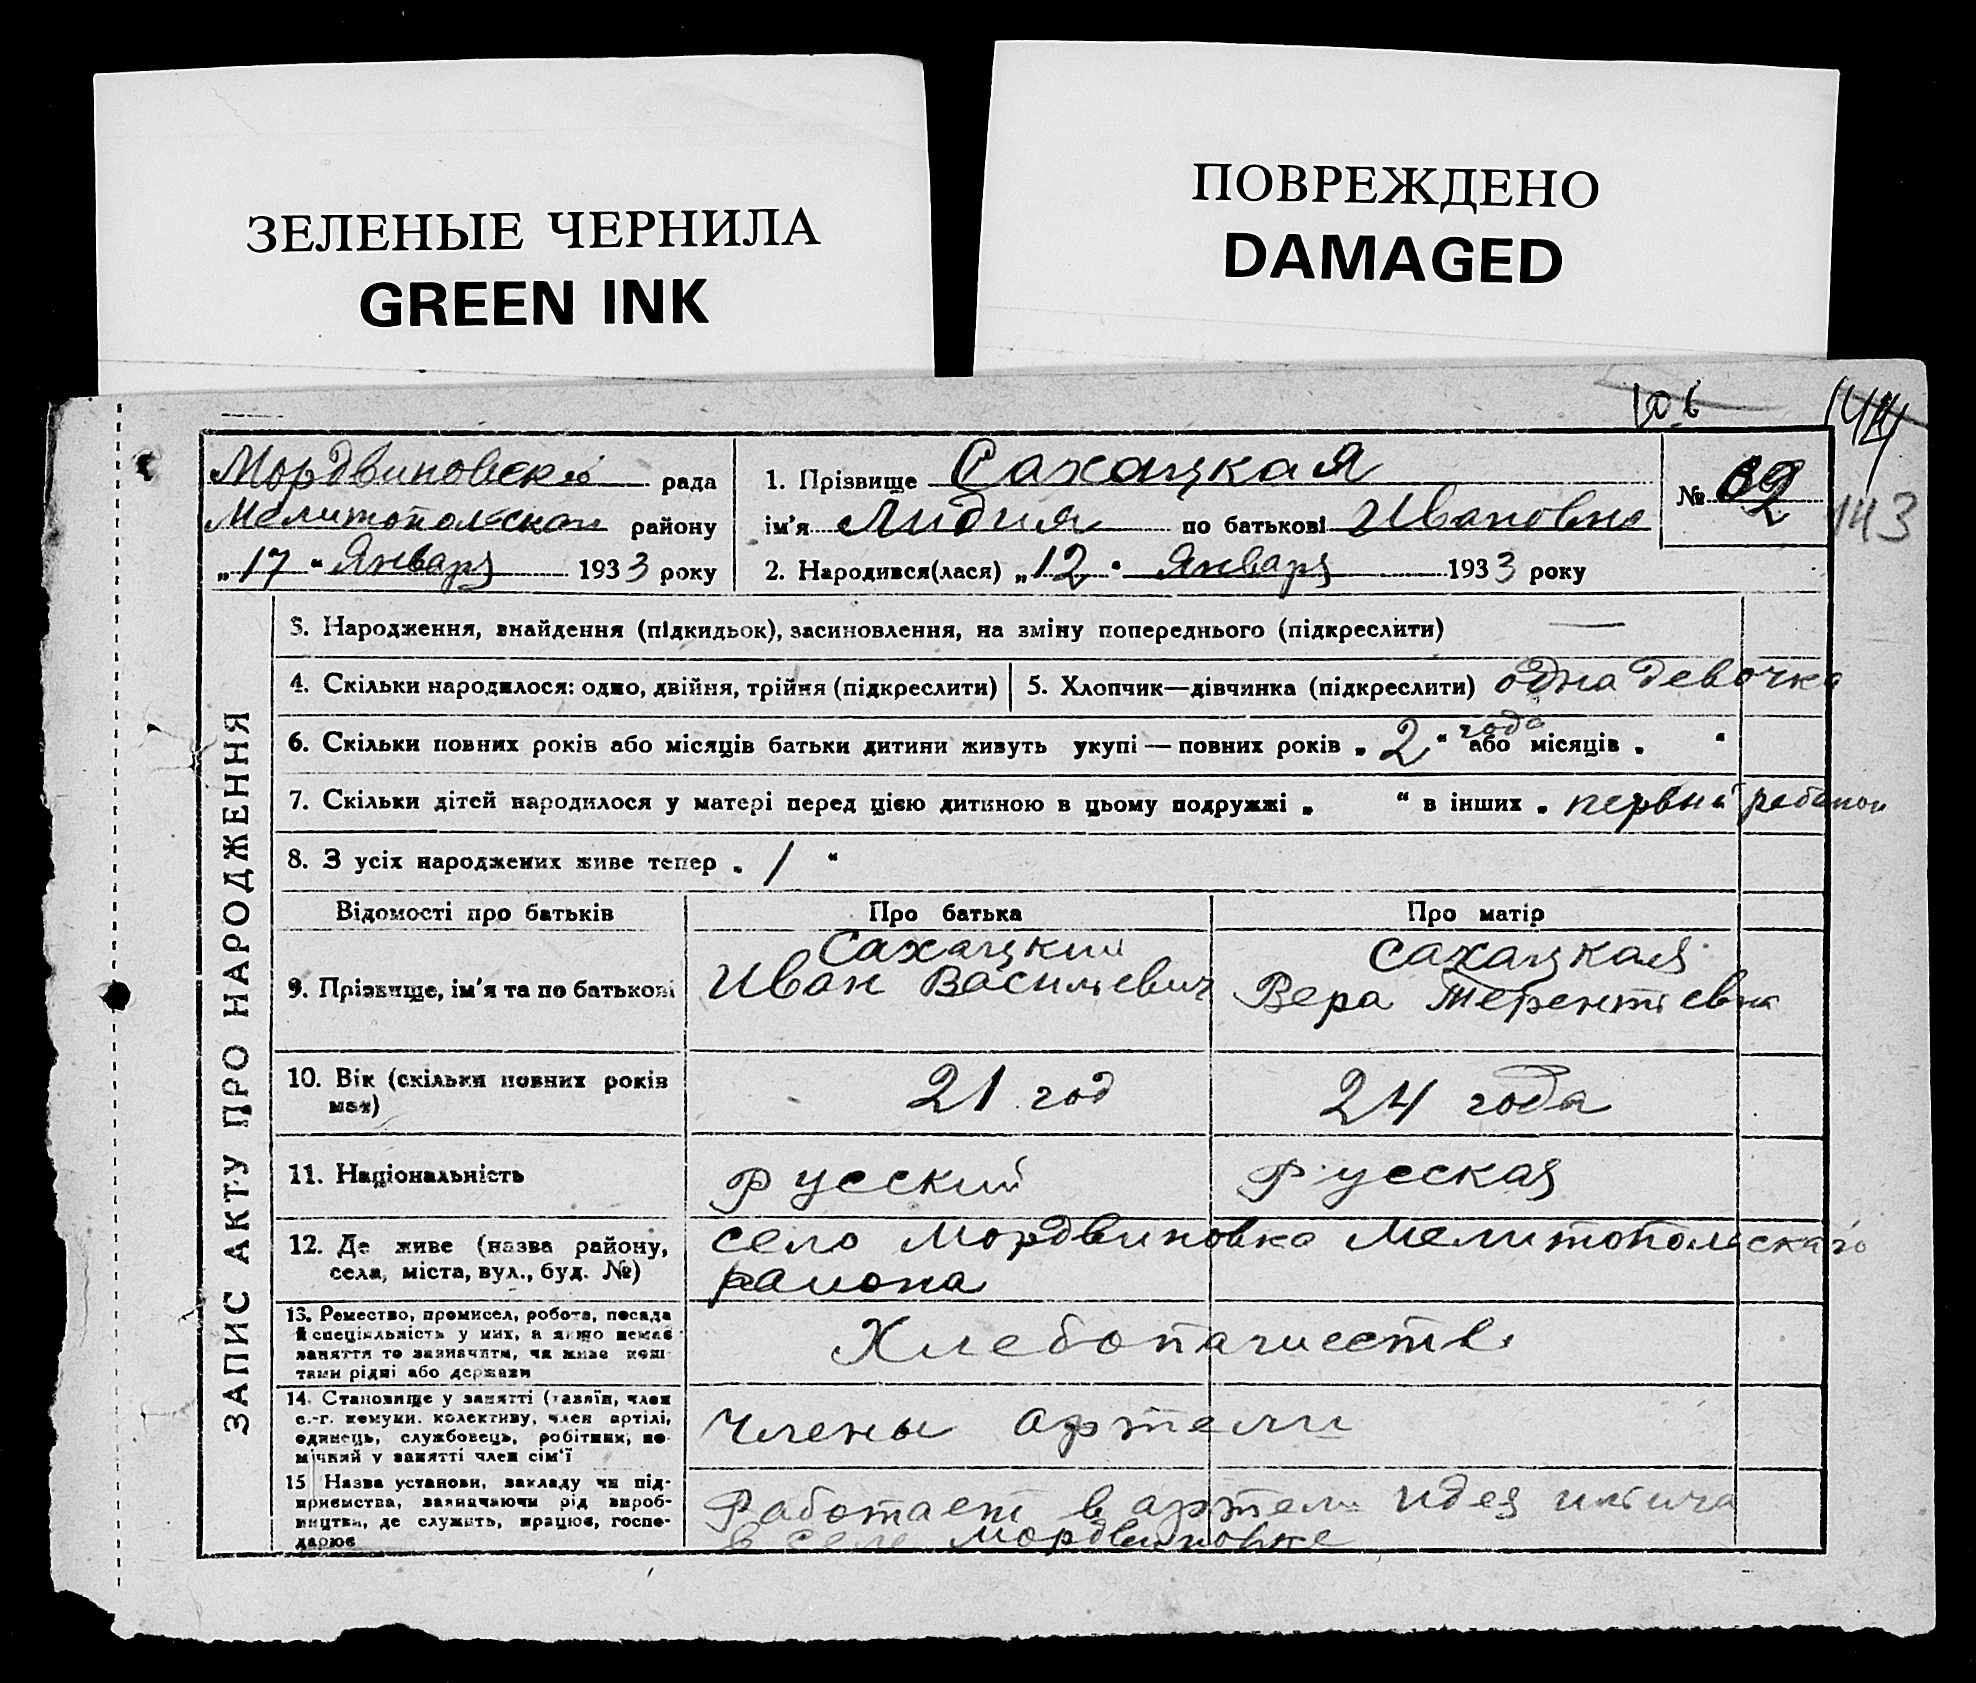 ЗЕЛЕНЫЕ ЧЕРНИЛА
GREEN INK
ПОВРЕЖДЕНО
DAMAGED
143
Мордвиновской рада
Мелитопольского району
„17“ Января 1933 року
1. Прізвище Сахацкая
ім'я Лидия по батькові Ивановна
2. Народився(лася) „12“ Января 1933 року
№ 02
ЗАПИС АКТУ ПРО НАРОДЖЕННЯ
3. Народження, знайдення (підкидьок), засиновлення, на зміну попереднього (підкреслити) —
4. Скільки народилося: одно, двійня, трійня (підкреслити) 5. Хлопчик—дівчинка (підкреслити) одна девочка
6. Скільки повних років або місяців батьки дитини живуть укупі — повних років „2“ года або місяців „ “
7. Скільки дітей народилося у матері перед цією дитиною в цьому подружжі „ “ в інших „ первый ребенок
8. З усіх народжених живе тепер „1“
Відомості про батьків Про батька Про матір
9. Прізвище, ім'я та по батькові
Сахацкий
Иван Василиевич
Сахацкая
Вера Терентиевна
10. Вік (скільки повних років
має)
21 год
24 года
11. Національність Русский Русская
12. Де живе (назва району,
села, міста, вул., буд. №)
село Мордвиновка Мелитопольскаго
района
13. Ремество, промисел, робота, посада
й спеціяльність у них, а якщо немає
заняття то зазначити, чи живе кош-
тами рідні або держави
Хлебопашество
14. Становище у занятті (хазяїн, член
с.-г. комуни, колективу, член артілі,
одинець, службовець, робітник, по-
мічний у занятті член сім'ї
члены артели
15 Назва установи, закладу чи під-
приємства, зазначаючи рід вироб-
ництва, де служить, працює, госпо-
дарює
Работает в артели идея ильича
в селе Мордвиновке